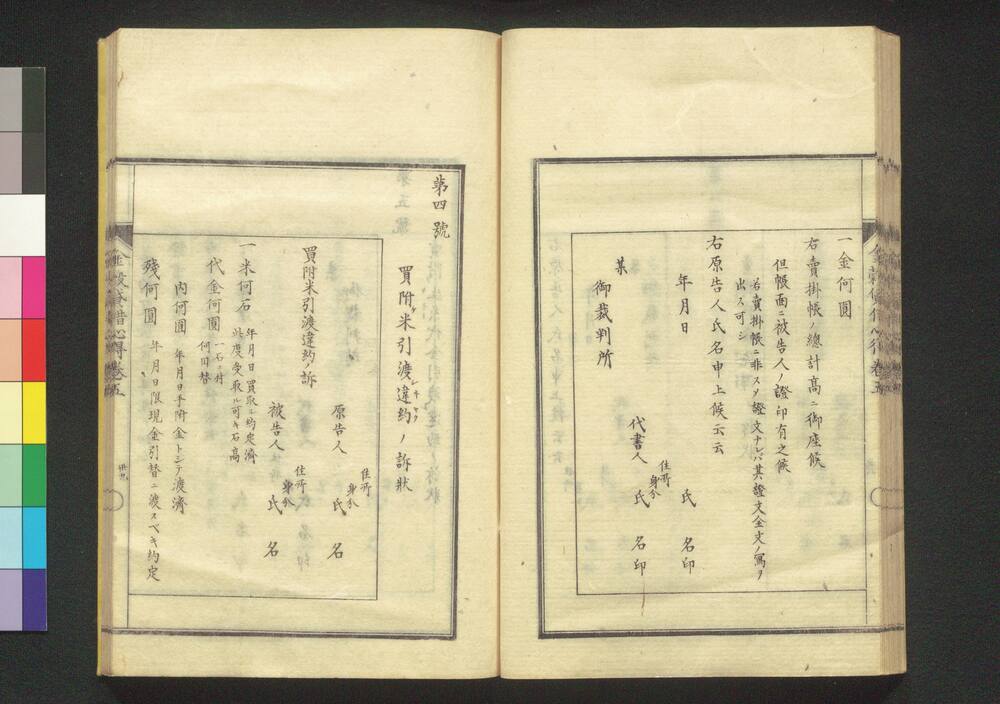 一金何圓
右賣掛帳ノ總計高ニ御座候
但帳面ニ被告人ノ證印有之候
若賣掛帳ニ非スノ證文ナレハ其證文全文ノ寫ヲ
出ス可シ
右原告人氏名申上候云云
年月日
氏名印
住所
身分
代書人 氏名印
某
御裁判所
第四號
買附米引渡違約ノ訴狀
買附米引渡違約ノ訴
住所
身分
原告人 氏名
住所
身分
被告人 氏名
一米何石 年月日買取ニ約定濟
此度受取ル可キ石高
代金何圓 一石ニ付
何圓替
內何圓 年月日手附金トシテ渡濟
殘何圓 年月日限現金引替ニ渡スベキ約定